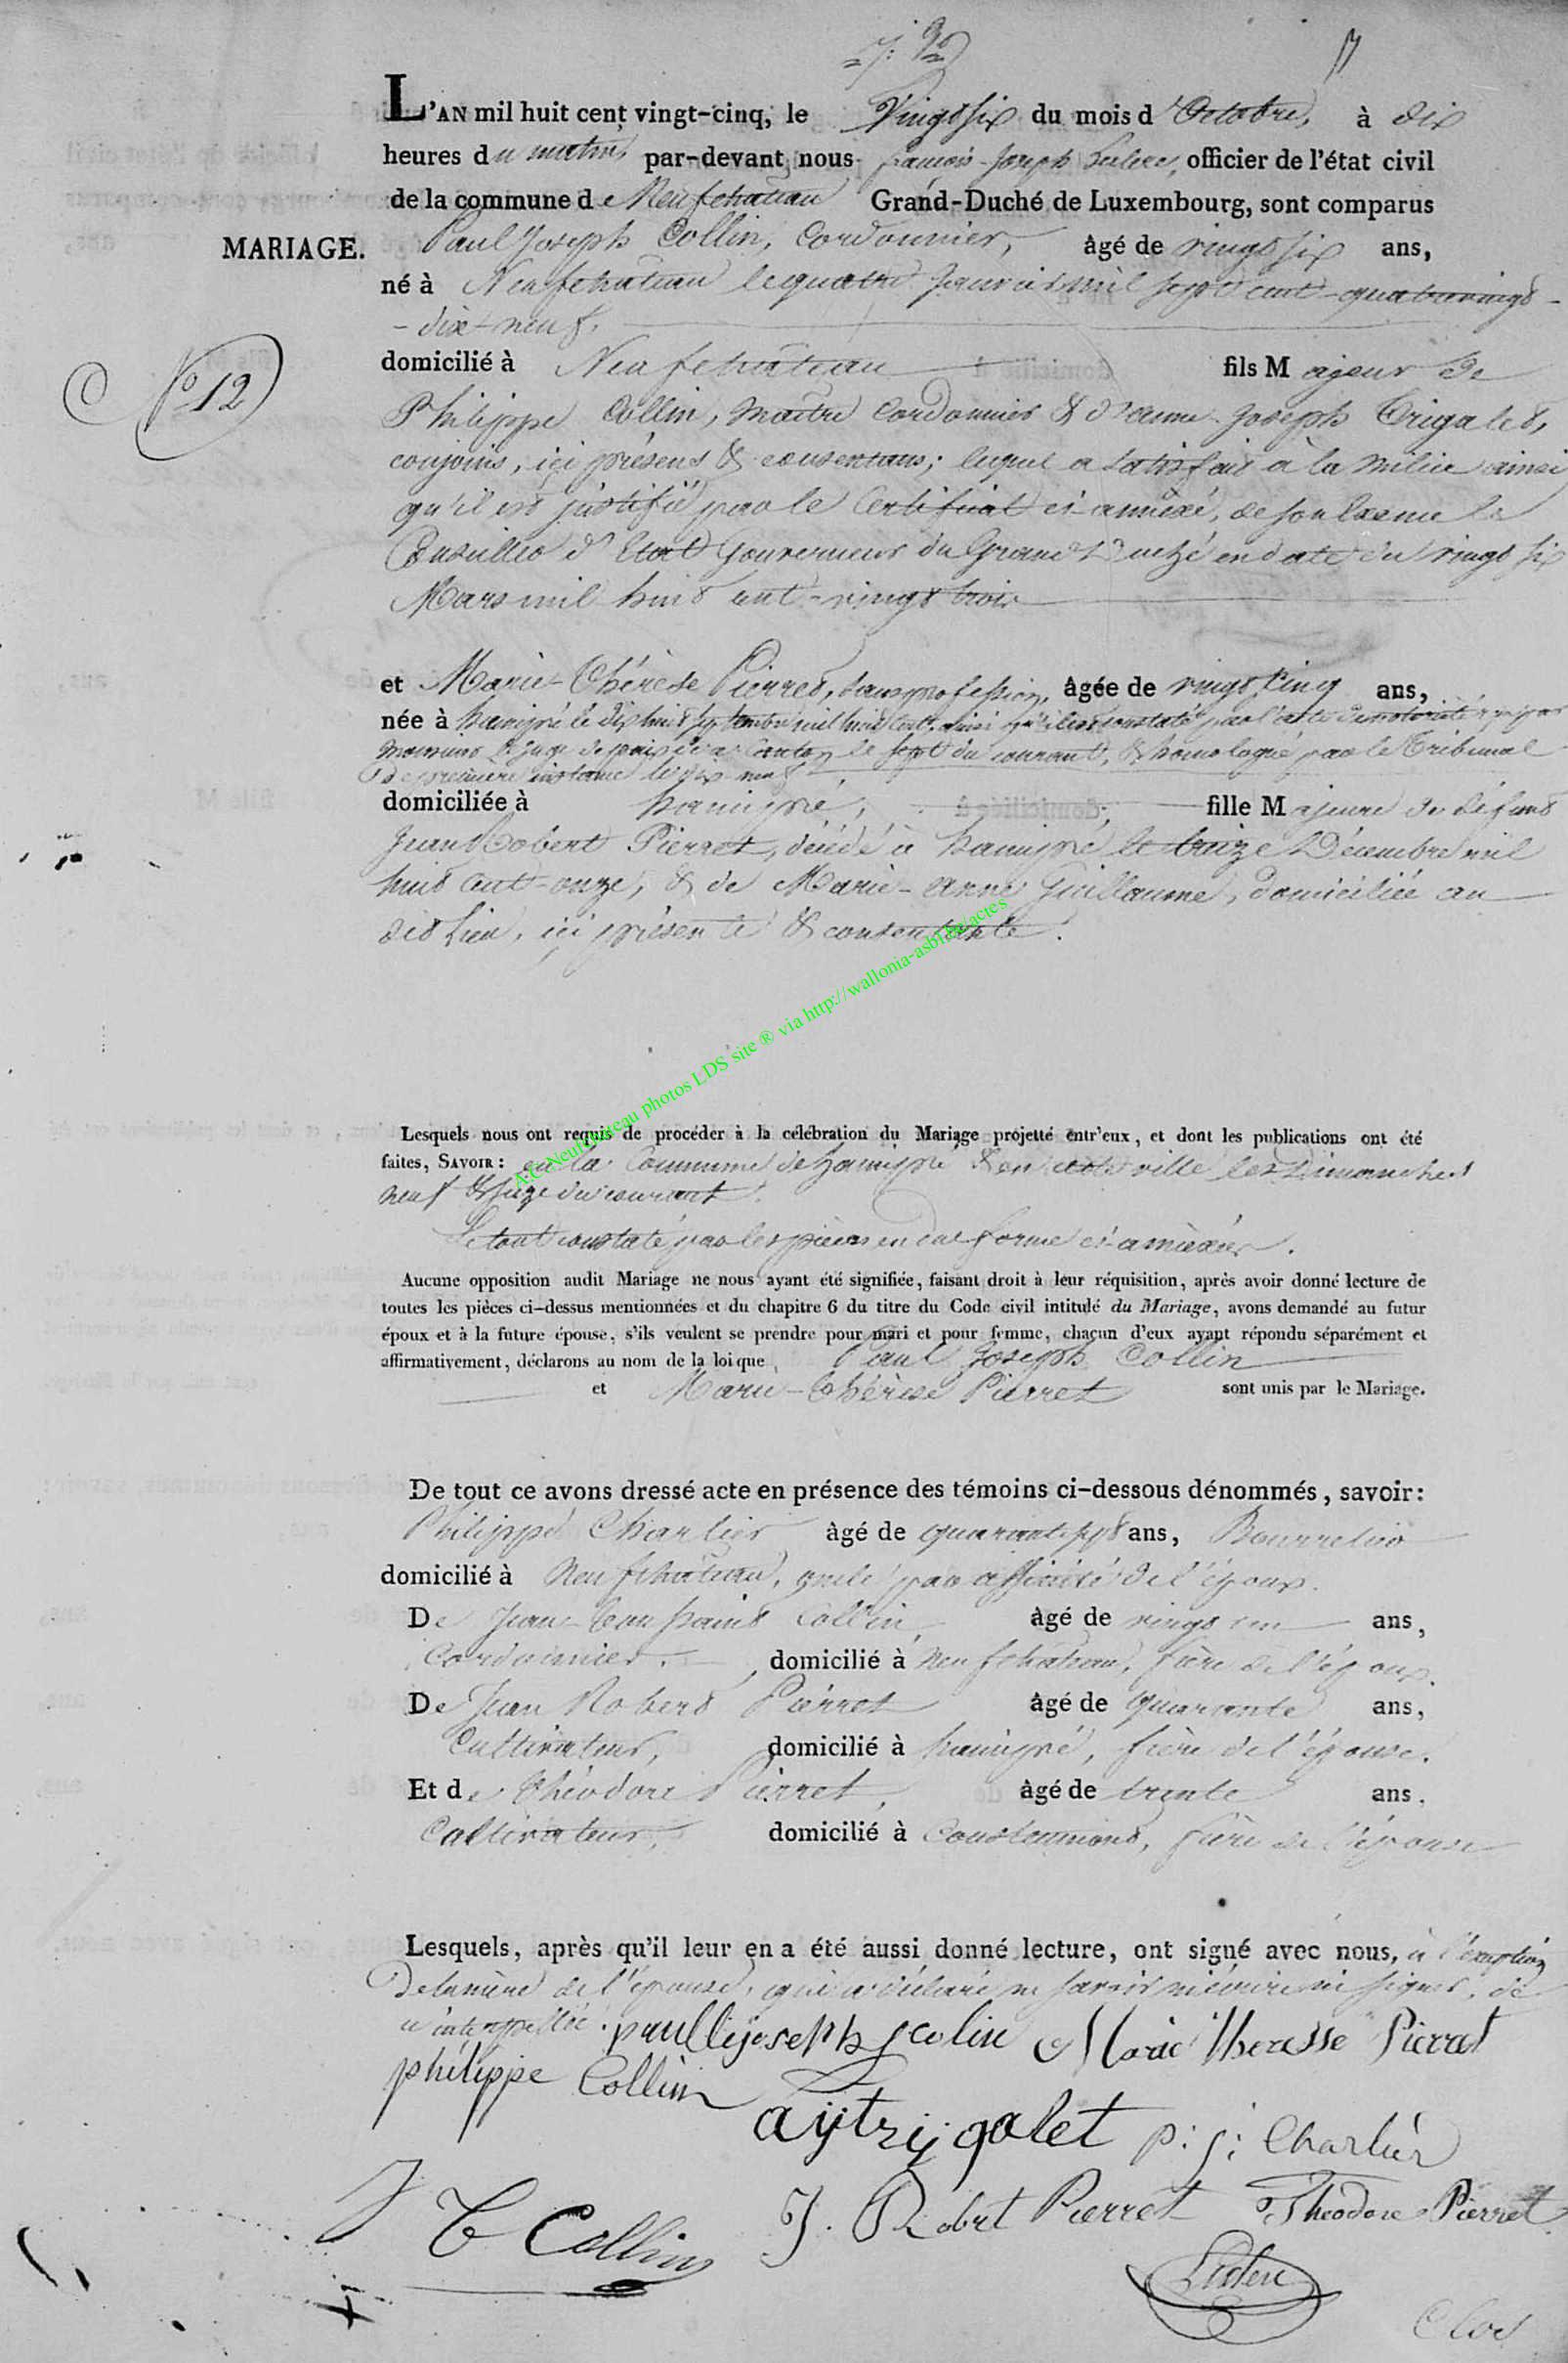 L'AN mil huit cent vingt-cinq, le Vingt six du mois d'Octobre, à dix
heures du matin, par-devant nous françois-Joseph officier de l'état civil
de la commune de Neufchateau Grand-Duché de Luxembourg, sont comparus
MARIAGE.
Paul Joseph Collin, Cordonnier, âgé de vingt six ans,
né à Neufchateau le quatre Janvier mil sept cent-quatrevingt-
-dix-neuf.
N° 12
domicilié à Neufchâteau fils Majeur de
Philippe Collin, maître Cordonnier & d'anne Joseph Trigalet,
conjoins, ici présens & consentans; lequel a satisfait à la milice ainsi
qu'il est justifié par le Certificat ci-annexé, de son Exence le
Conseiller d'Etat Gouverneur du Grand Duché en date du vingt six
Mars mil huit cent-vingt trois
et Marie-Thérèse Pierret, sans profession, âgée de vingt cinq ans,
née à hamipré le dix huit septembre mil huit cent, ainsi qu'il est constaté par l'acte de notoriété
le Juge de paix de ce Canton le sept du courant, & homologué par le Tribunal
De première instance le dix neuf
domiciliée à hamipré, fille Majeure de défunt
Jean Robert Pierret, décédé à hamipré le treize Décembre mil
huit cent-onze, & de Marie-anne Guillaume, domiciliée au
dit Lieu, ici présente & consentante.
A.C. Neufchateau photos LDS site ® via http://wallonia-asbl.be/actes
Lesquels nous ont requis de procéder à la célébration du Mariage projetté entr'eux, et dont les publications ont été
faites, SAVOIR: en la Commune de hamipré & en cette ville les Dimanches
neuf & seize du courant.
Le tout constaté par les pièces en due forme ci-annexées.
Aucune opposition audit Mariage ne nous ayant été signifiée, faisant droit à leur réquisition, après avoir donné lecture de
toutes les pièces ci-dessus mentionnées et du chapitre 6 du titre du Code civil intitulé du Mariage, avons demandé au futur
époux et à la future épouse, s'ils veulent se prendre pour mari et pour femme, chacun d'eux ayant répondu séparément et
affirmativement, déclarons au nom de la loi que Paul Joseph Collin
et Marie-Thérèse Pierret sont unis par le Mariage.
De tout ce avons dressé acte en présence des témoins ci-dessous dénommés, savoir:
Philippe Charlier âgé de quarante sept ans, Bourrelier
domicilié à Neufchâteau, oncle par affinité de l'époux.
De Jean-Toussaint Collin, âgé de vingt un ans,
Cordonnier, domicilié à Neufchâteau, frère de l'époux.
De Jean Robert Pierret âgé de quarante ans,
Cultivateur, domicilié à hamipré, frère de l'épouse.
Et de Théodore Pierret, âgé de trente ans.
Cultivateur, domicilié à Coustoumont, frère de l'épouse
Lesquels, après qu'il leur en a été aussi donné lecture, ont signé avec nous, à l'exception
De la mère de l'épouse, qui a déclaré ne savoir ni écrire ni signer, de
ce interpellée. paulle joseph colin Marie Theresse Pierret
philippe Collin
aytrijgalet p: j: Charlier
J T Collin J. Robert Pierret Theodore Pierret
Clos